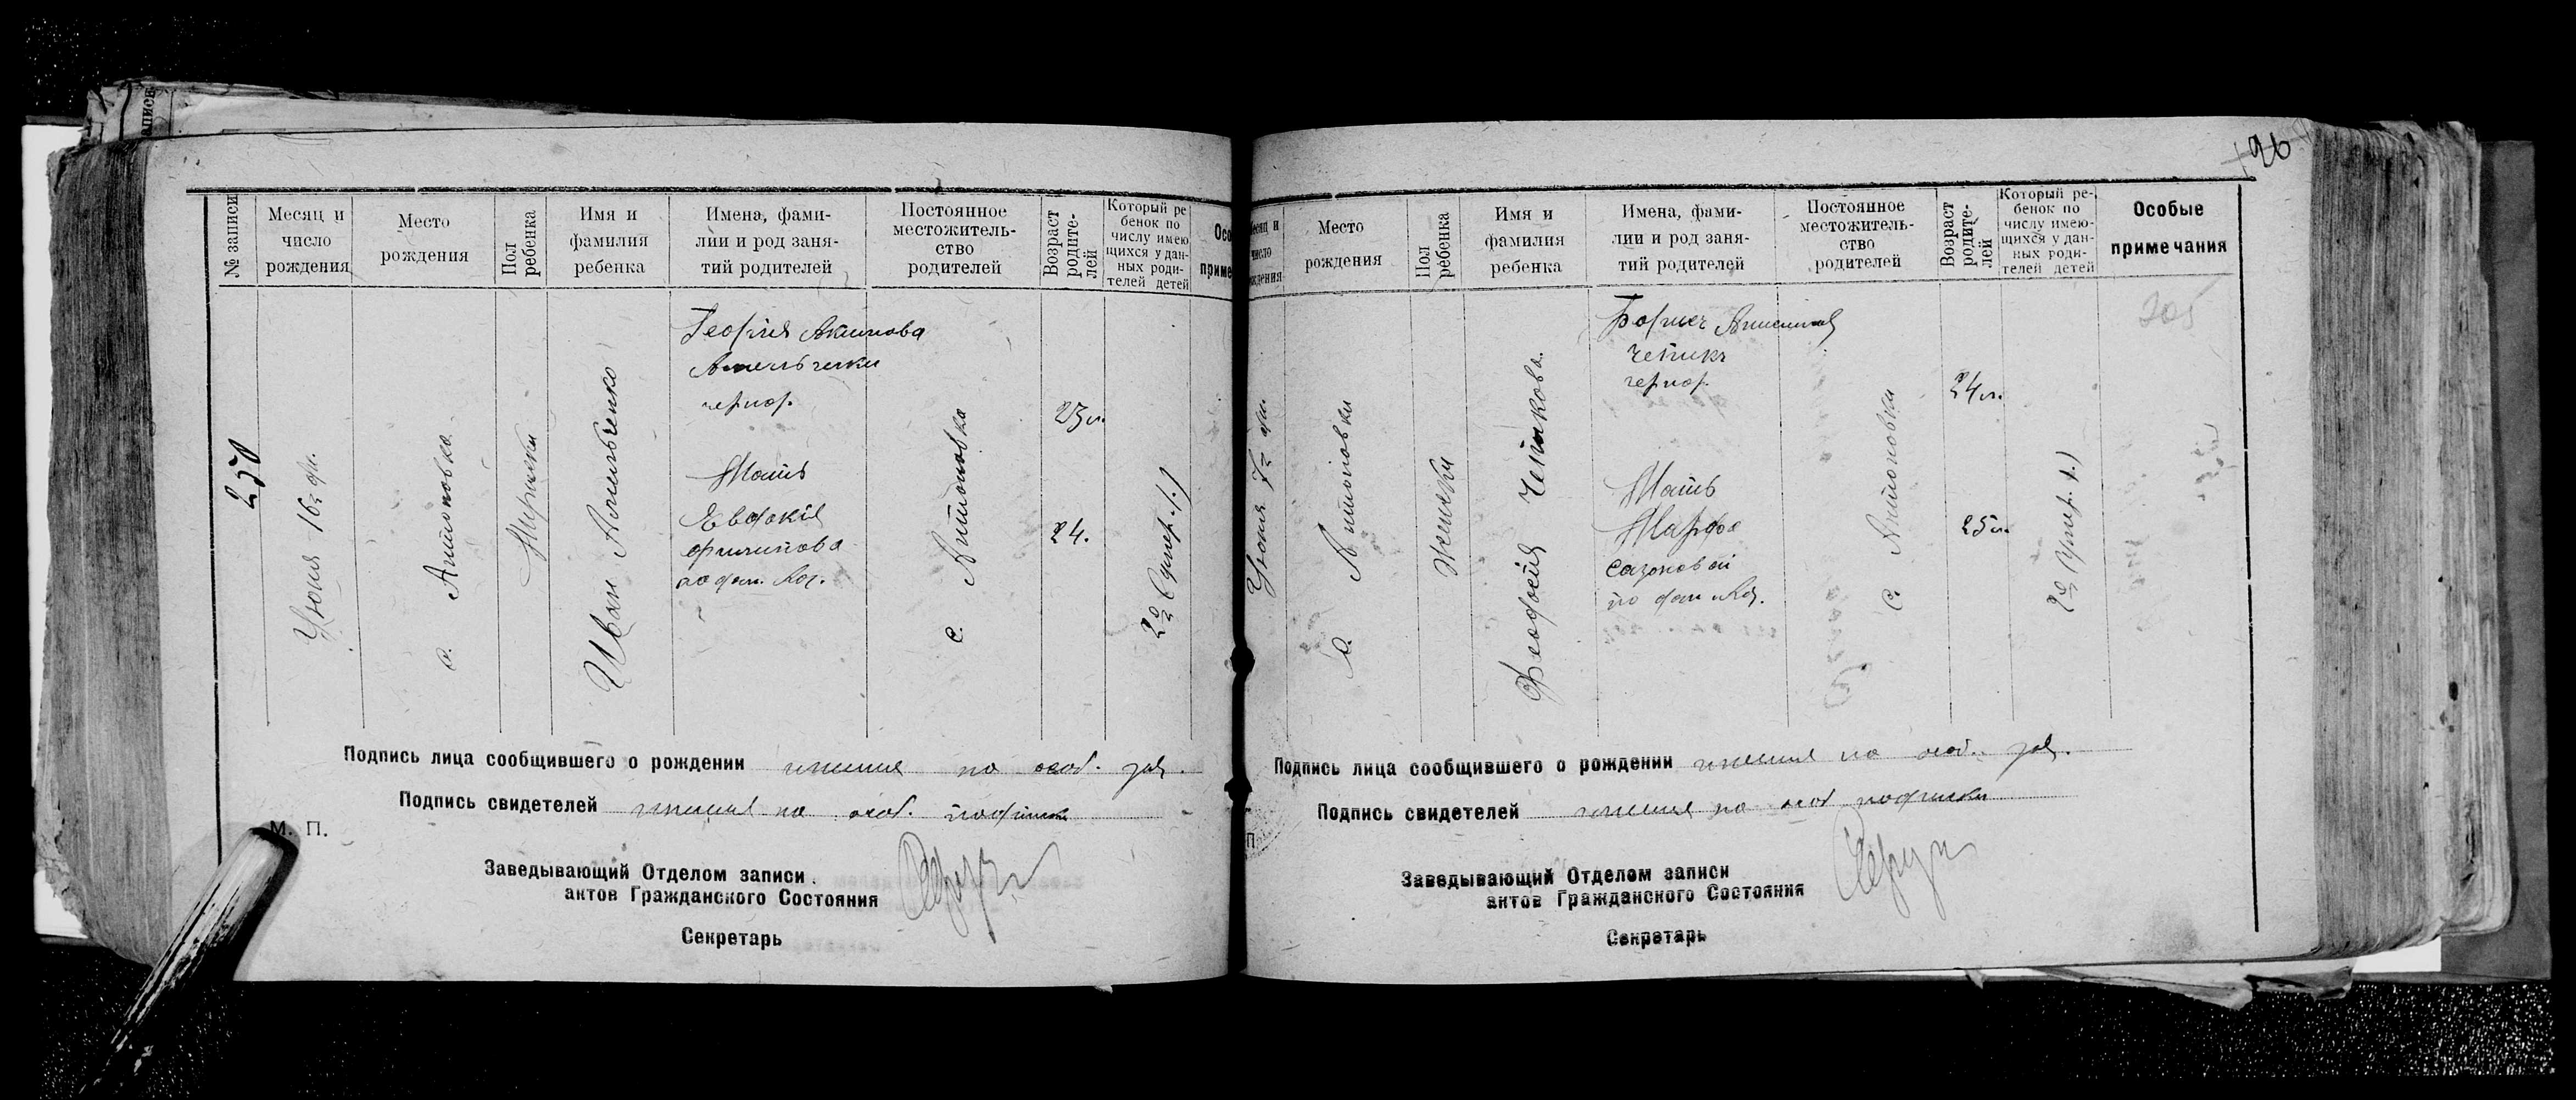 196
№ записи
Месяц и
число
рождения
Место
рождения
Пол
ребенка
Имя и
фамилия
ребенка
Имена, фами-
лии и род заня-
тий родителей
Постоянное
местожитель-
ство
родителей
Возраст
родите-
лей
Который ре
бенок по
числу имею
щихся у дан-
ных роди-
телей детей
Осо
приме
250
Июня 16го дн.
с. Антоновка
Мужески
Иван Амельченко
Акимова
Амельченки
Мать
Евдокія
Филипова
с. Антоновка
23 л.
24.
Подпись лица сообщившего о рождении имеися на особ. зая.
Подпись свидетелей имеися на особ. подписки
М. П.
Заведывающий Отделом записи
актов Гражданского Состояния
Секретарь
есяц и
число
ждения
Место
рождения
Пол
ребенка
Имя и
фамилия
ребенка
Имена, фами-
лии и род заня-
тий родителей
Постоянное
местожитель-
ство
родителей
Возраст
родите-
лей
Который ре-
бенок по
числу имею-
щихся у дан-
ных роди-
телей детей
Особые
примечания
Июня 7го дн.
с. Антоновки
Женски
Феодосія
Борис
Мать
Марфа
Сазоновой
с. Антоновки
24 л.
25 л.
205
Подпись лица сообщившего о рождении имеися на особ. зая.
Подпись свидетелей имеися на особ подписки
П
Заведывающий Отделом записи
актов Гражданского Состояния
Секретарь